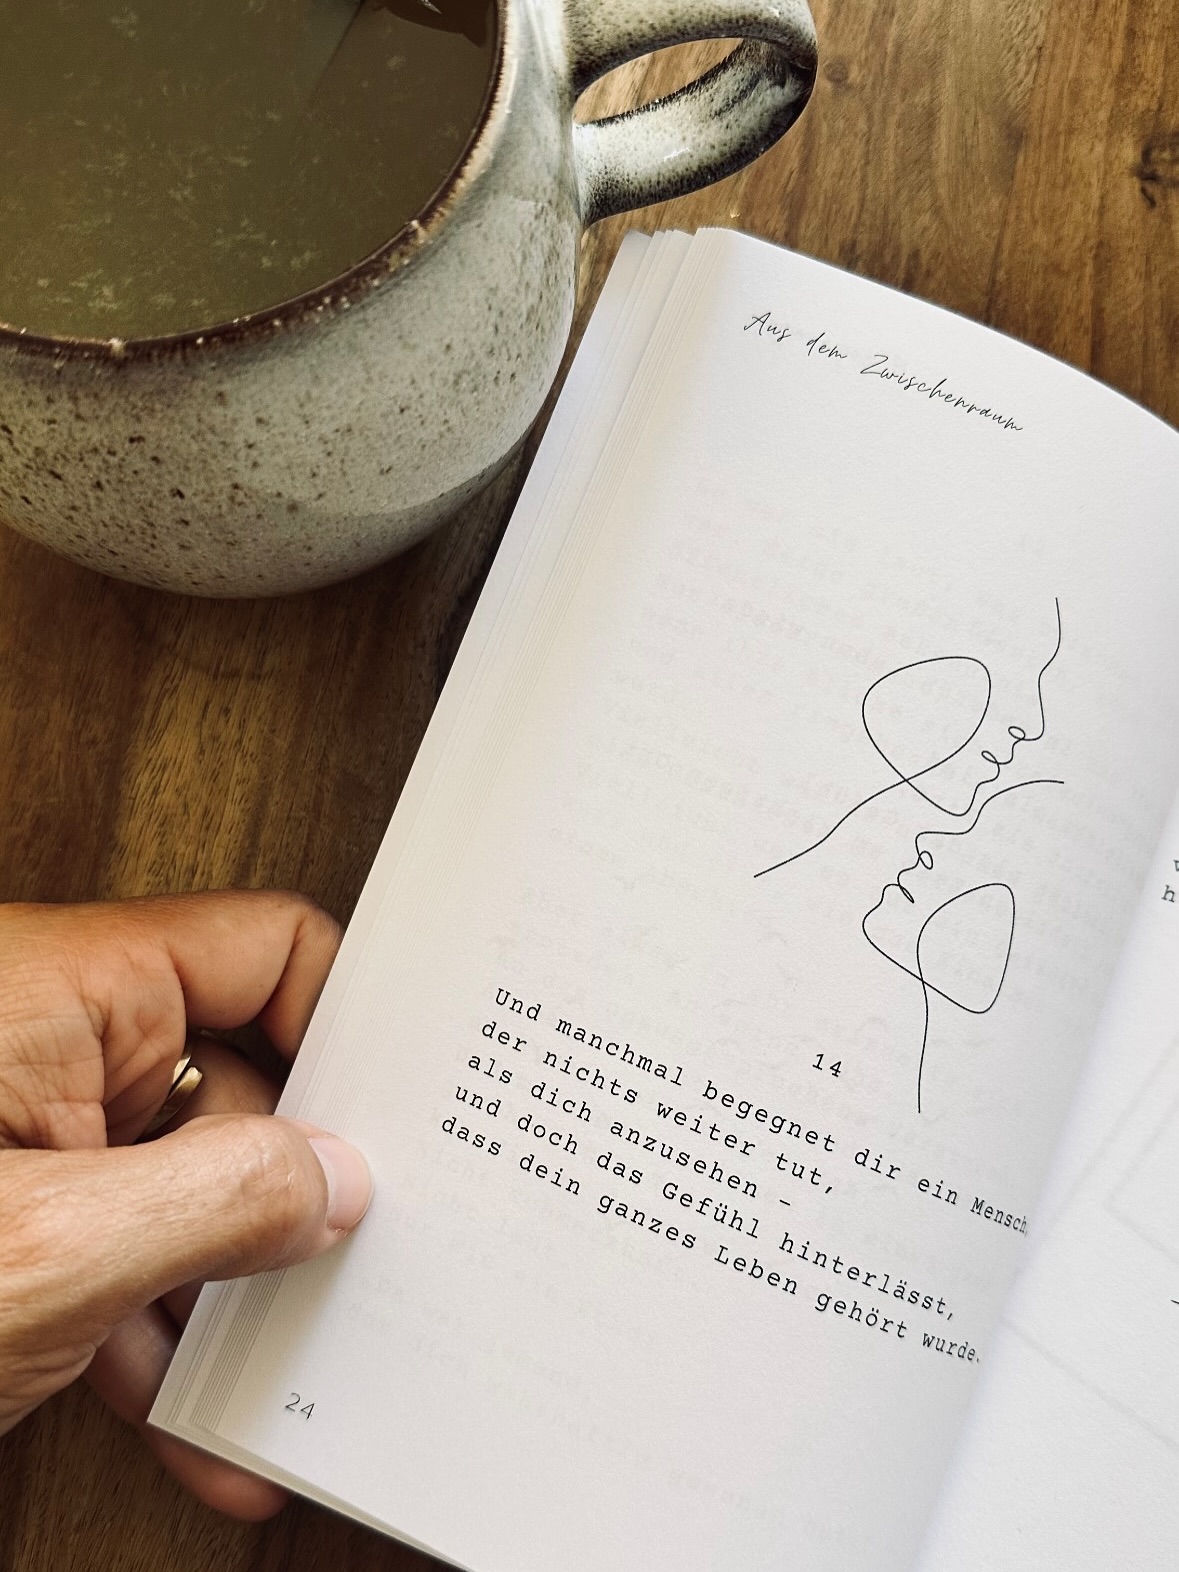 Aus dem Zwischenraum
14
Und manchmal begegnet dir ein Mensch,
der nichts weiter tut,
als dich anzusehen –
und doch das Gefühl hinterlässt,
dass dein ganzes Leben gehört wurde.
24